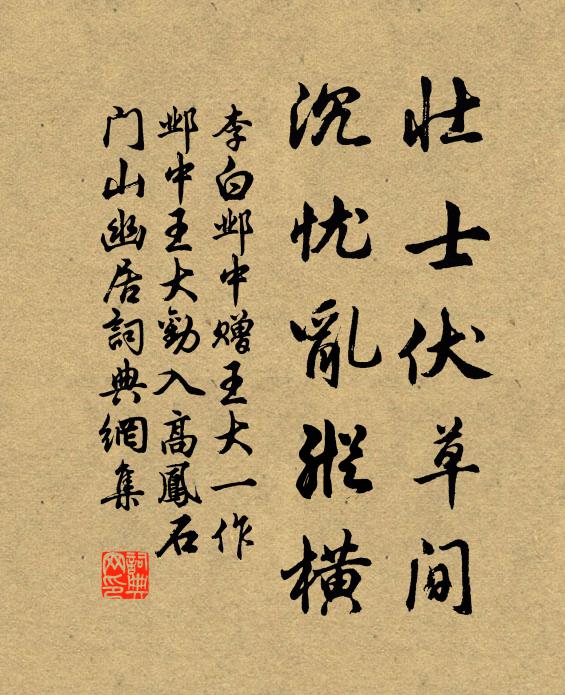 壮士伏草间
沉忧乱纵横
李白邺中赠王大一作
邺中王大劝入高凤石
门山幽居词典网集
词典
网印